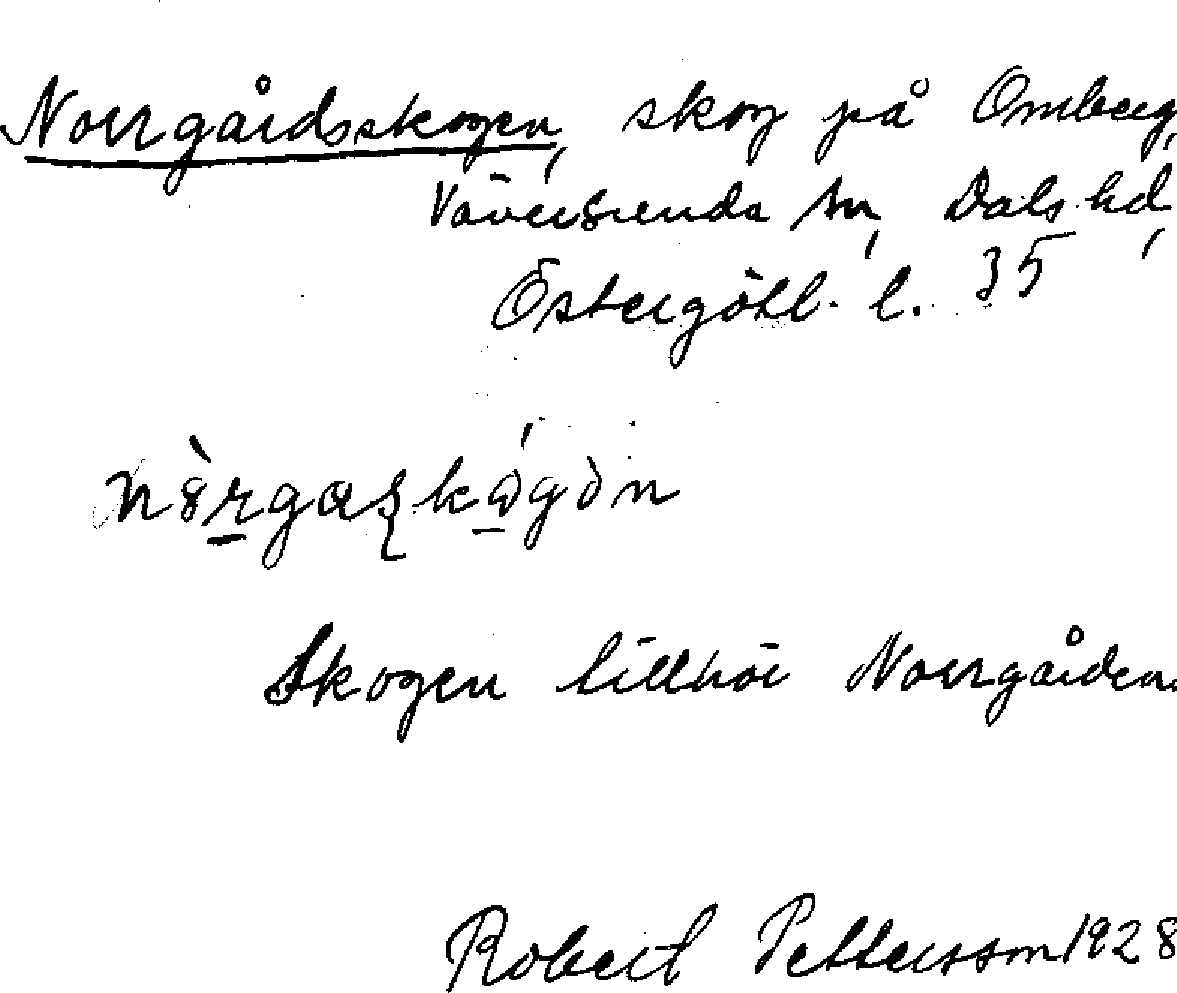 Norrgårdsskogen, skog på Omberg,
Väversunda sn, Dals hd,
Östergötl. l. 35
Skogen tillhör Norrgården.
Robert Pettersson 1928